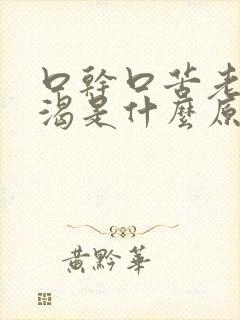 口幹口苦老
渴是什麼原
黃黔華